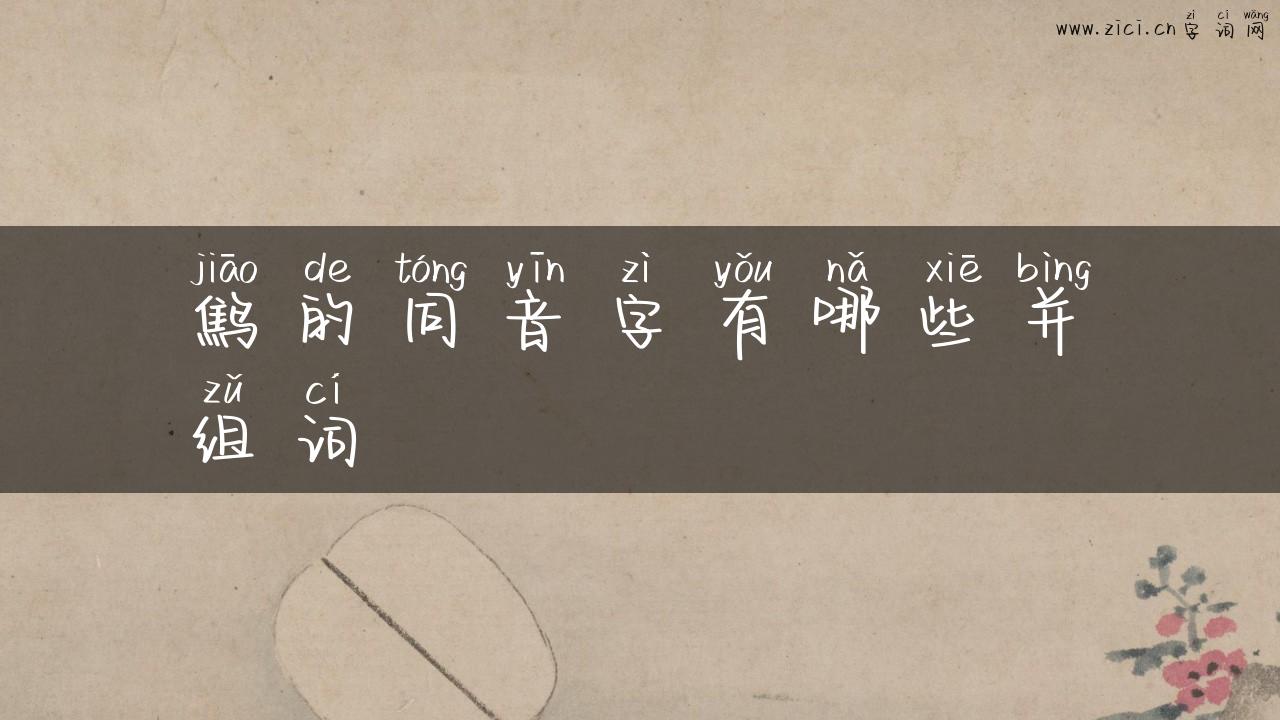 zì cí wǎng
www.zici.cn 字词网
jiāo de tóng yīn zì yǒu nǎ xiē bìng
的同音字有哪些并
zǔ cí
组词